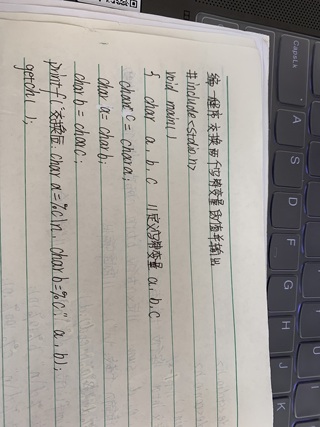 编一程序交换两个字符变量的值并输出
#include<stdio.h>
void main()
{ char a, b, c //定义字符变量 a, b, c
char c = char a;
char a = char b;
char b = char c;
printf("交换后, char a=%c\n char b=%c", a, b);
getch();
CapsLock
A
S
D
F
G
H
J
K